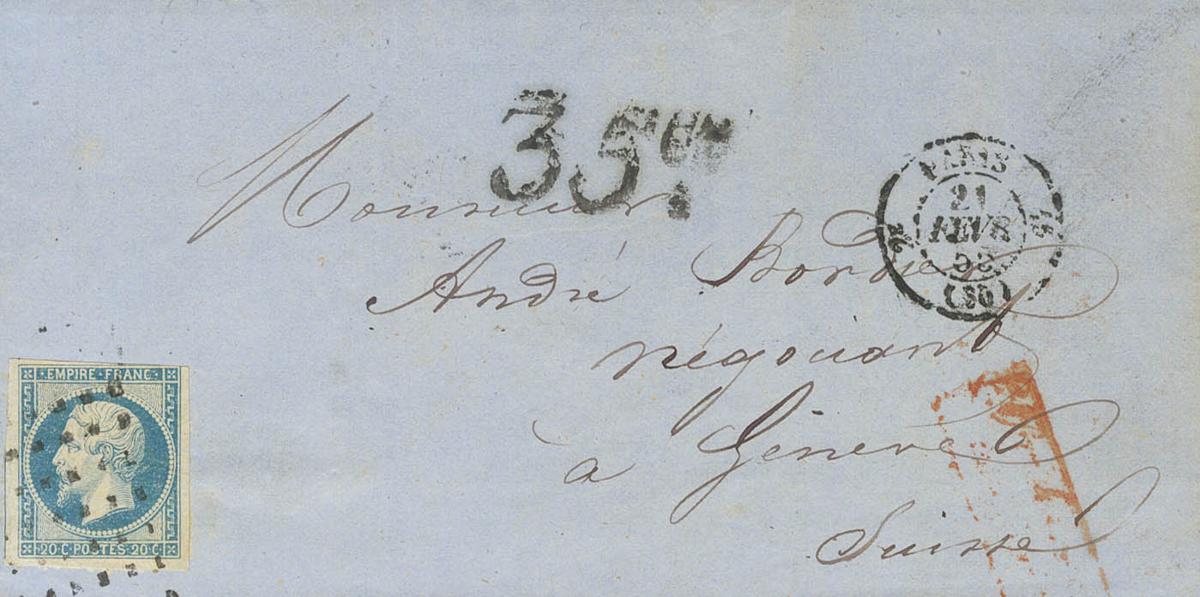 35cts.
PARIS
21
FEVR
(60)
Monsieur
André Bordier
négociant
à Genève
Suisse
EMPIRE FRANC.
20 C. POSTES 20 C.